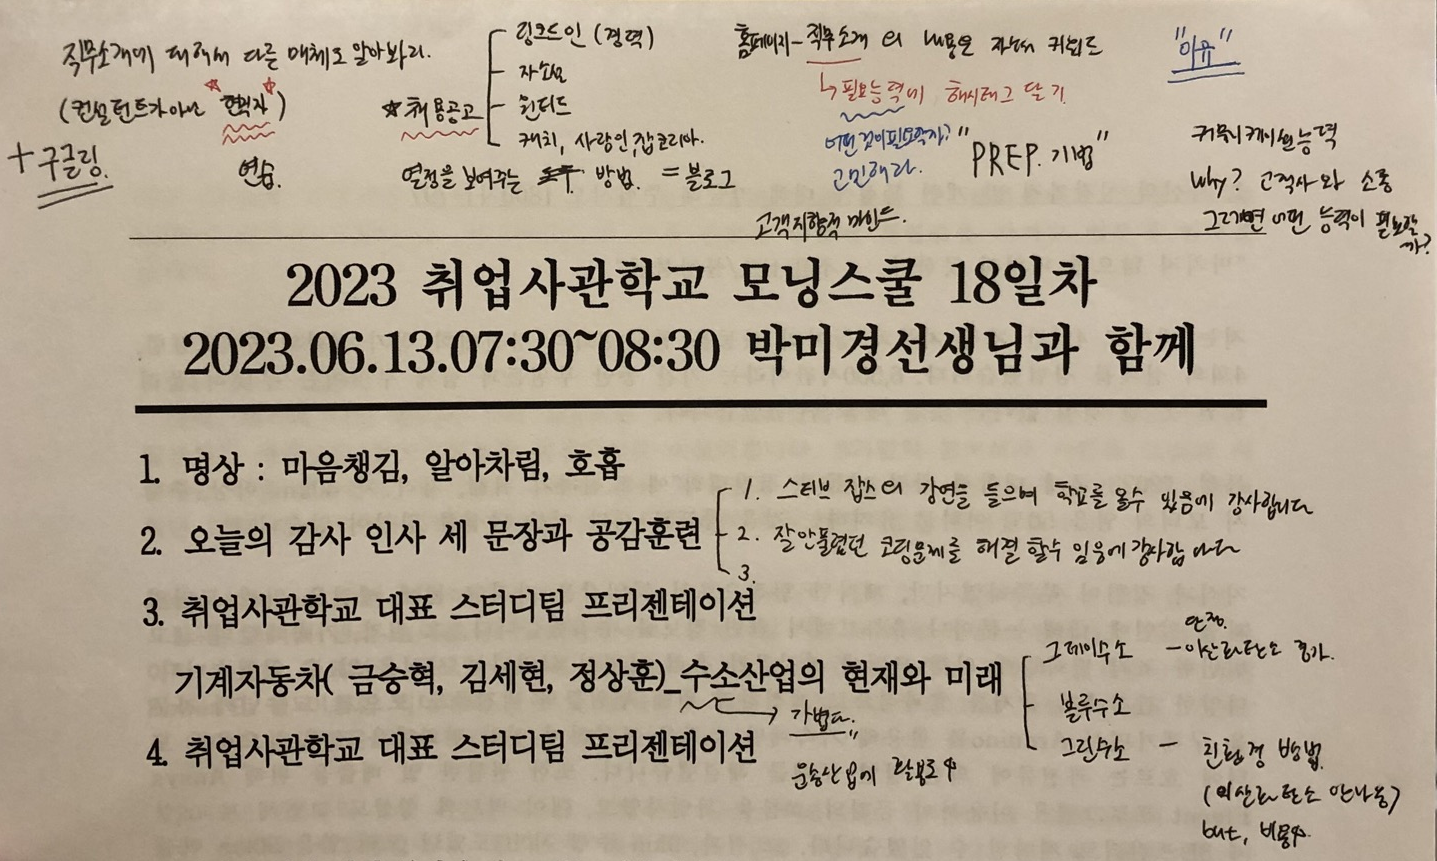 직무소개에 대해서 다른 매체도 알아봐라.
(컨설턴트가 아닌 현직자)
+구글링.
연습.
☆채용공고
링크드인 (경력)
자소설
원티드
캐치, 사람인, 잡코리아.
열정을 보여주는 방법. = 블로그
홈페이지 - 직무소개 의 내용은 자소서 키워드
↳필요능력에 해시태그 달기
어떤것이 필요할까?
고민해라.
"PREP. 기법"
고객지향적 마인드.
"이유"
커뮤니케이션능력
Why? 고객사와 소통
그러면 어떤 능력이 필요할
까?
2023 취업사관학교 모닝스쿨 18일차
2023.06.13.07:30~08:30 박미경선생님과 함께
1. 명상 : 마음챙김, 알아차림, 호흡
2. 오늘의 감사 인사 세 문장과 공감훈련
1. 스티브 잡스의 강연을 들으며 학교를 올수 있음에 감사합니다
2. 잘안풀렸던 코딩문제를 해결 할수 있음에 감사합니다
3.
3. 취업사관학교 대표 스터디팀 프리젠테이션
기계자동차( 금승혁, 김세현, 정상훈)_수소산업의 현재와 미래
→ 가볍다.
운송산업에 활용도↑
단점.
그레이수소 - 이산화탄소 증가.
블루수소
그린수소 - 친환경 방법.
(이산화탄소 안나옴)
but, 비용↑.
4. 취업사관학교 대표 스터디팀 프리젠테이션